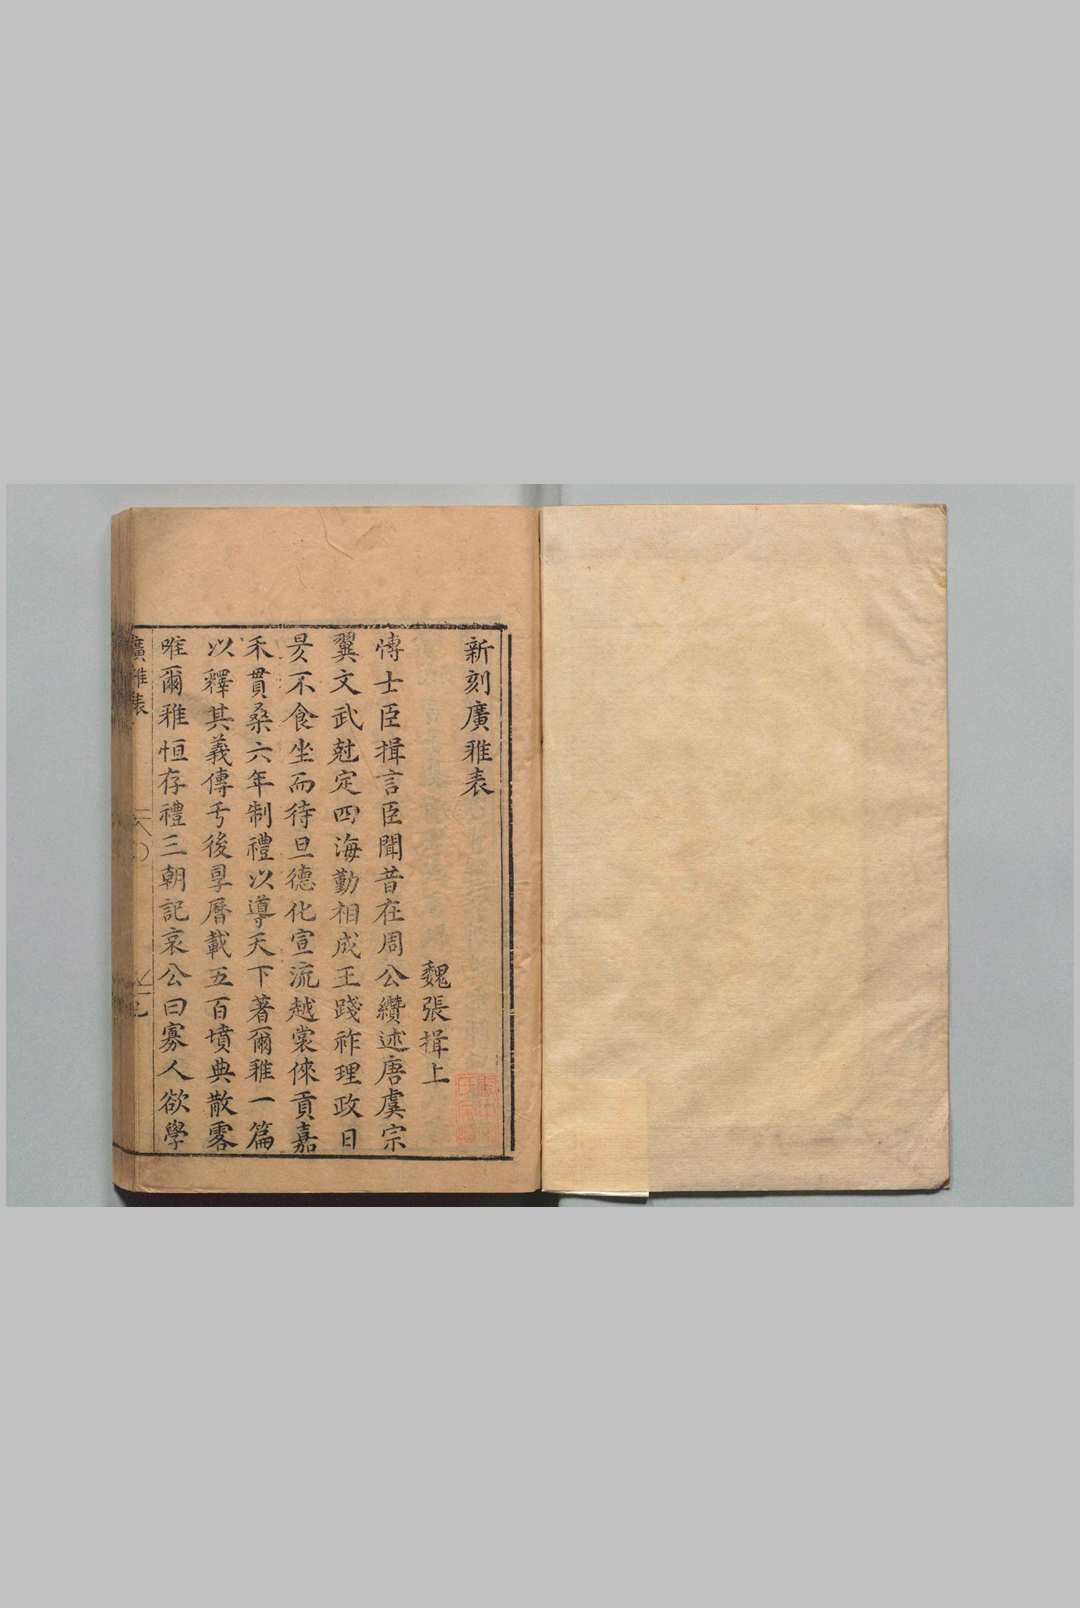 新刻廣雅表
魏張揖上
愽士臣揖言臣聞昔在周公纘述唐虞宗
翼文武尅定四海勤相成王踐祚理政日
昃不食坐而待旦德化宣流越裳倈貢嘉
禾貫桑六年制禮以導天下著爾雅一篇
以釋其義傳于後㝈曆載五百墳典散零
唯爾雅恒存禮三朝記哀公曰寡人欲學
廣雅表